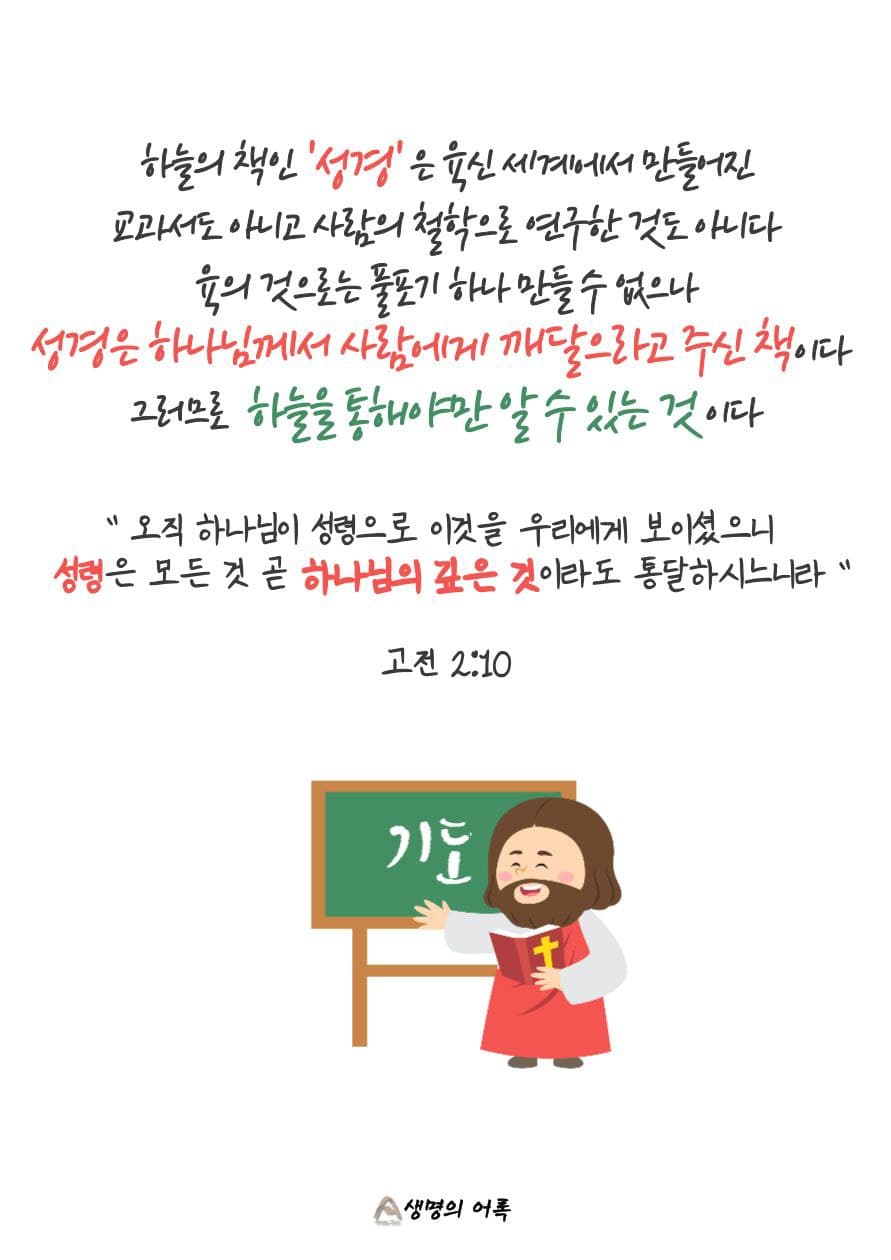 하늘의 책인 '성경'은 육신 세계에서 만들어진
교과서도 아니고 사람의 철학으로 연구한 것도 아니다
육의 것으로는 풀포기 하나 만들 수 없으나
성경은 하나님께서 사람에게 깨달으라고 주신 책이다
그러므로 하늘을 통해야만 알 수 있는 것이다
" 오직 하나님이 성령으로 이것을 우리에게 보이셨으니
성령은 모든 것 곧 하나님의 깊은 것이라도 통달하시느니라 "
고전 2:10
기도
생명의 어록